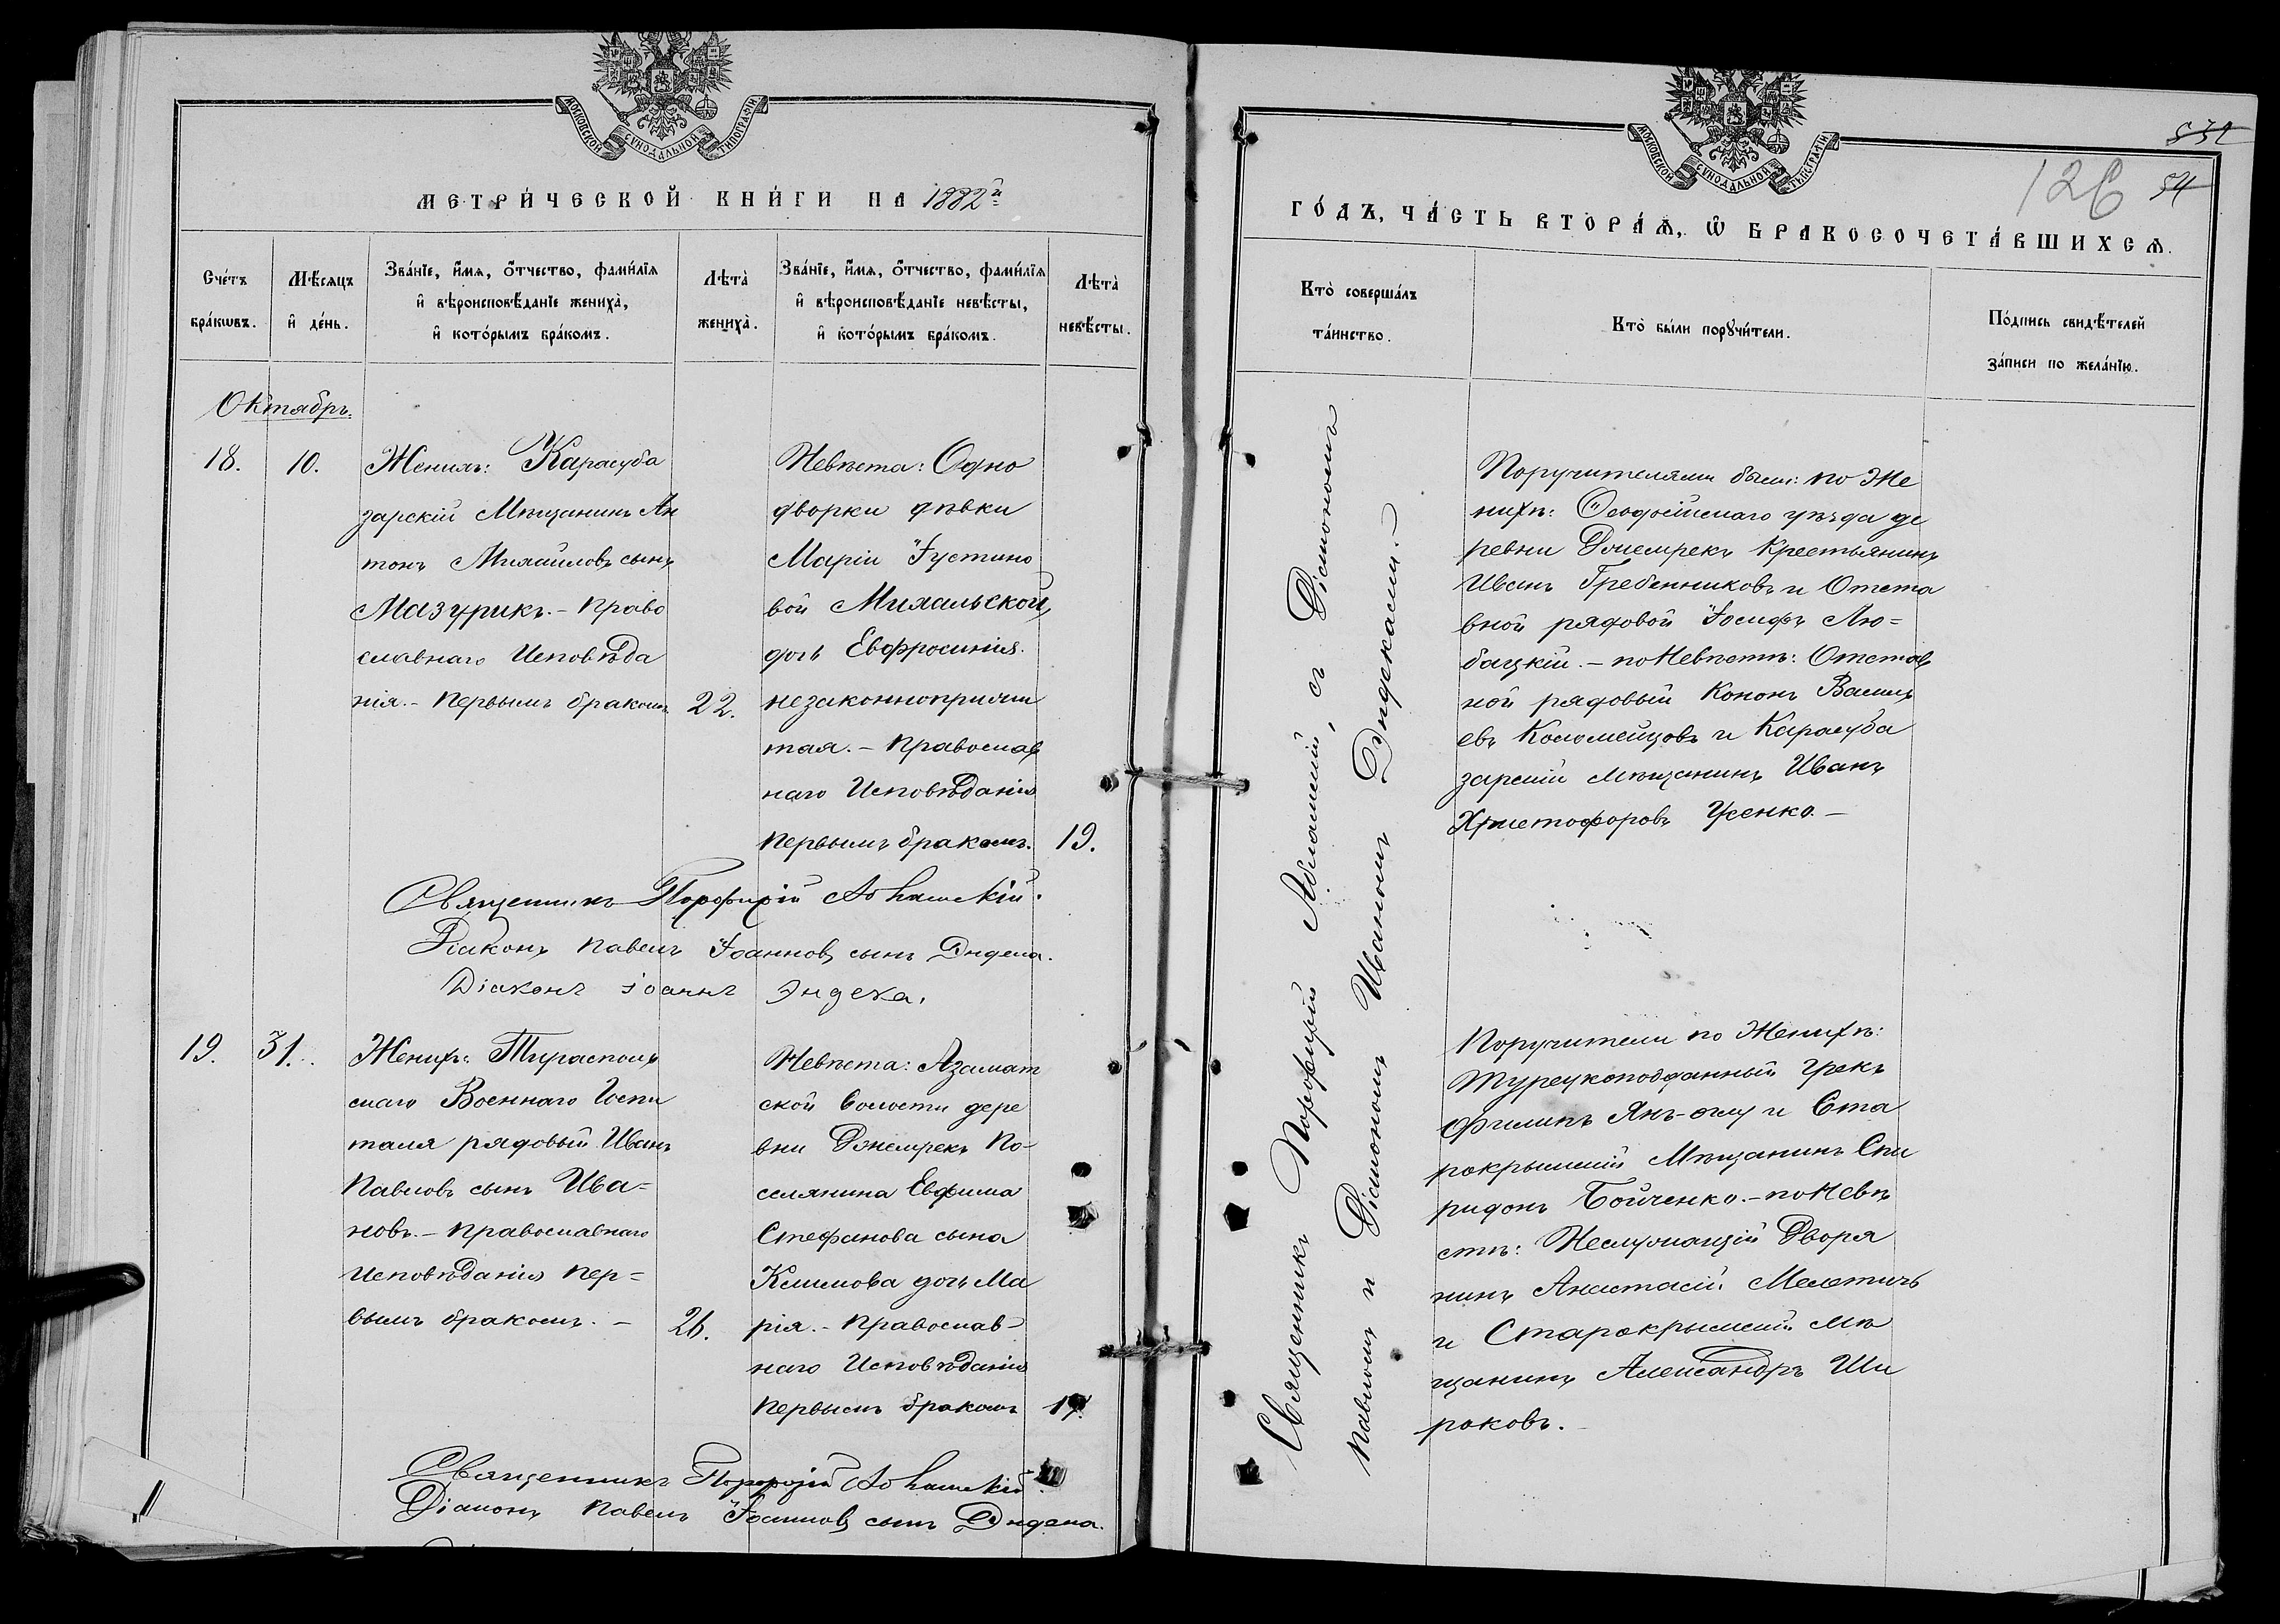 МОСКОВСКОЙ СѴНОДАЛЬНОЙ ТИПОГРАФІИ
МЕТРИ́ЧЕСКОЙ КНИ́ГИ НА 1882й
Сче́тъ бра́кѡвъ.
Мѣ́сяцъ и҆ де́нь.
Зва́нїе, и҆́мѧ, ѻ҆́тчество, фами́лїѧ
и҆ вѣроисповѣ́данїе жениха̀,
и҆ кото́рымъ бра́комъ.
Лѣта̀ жениха̀.
Зва́нїе, и҆́мѧ, ѻ҆́тчество, фами́лїѧ
и҆ вѣроисповѣ́данїе невѣ́сты,
и҆ кото́рымъ бра́комъ.
Лѣта̀ невѣ́сты.
Октябрь.
18.
10.
Женихъ: Карасуба
зарскій Мѣщанинъ Ан
тонъ Михайловъ сынъ
Мазурикъ. – Право
славнаго Исповѣда
нія. – Первымъ бракомъ
22.
Невѣста: Одно
дворки дѣвки
Маріи Іустино
вой Михальской,
дочь Евфросинія.
незаконноприжи
тая. – Православ
наго Исповѣданія
Первымъ бракомъ.
19.
Священникъ Порфирій
Діаконъ Павелъ Іоанновъ сынъ Диdека.
Діаконъ Іоаннъ Эндека.
19.
31.
Женихъ: Тирасполь
скаго Военнаго Госпи
таля рядовый Иванъ
Павловъ сынъ Ива=
новъ. – Православнаго
Исповѣданія пер=
вымъ бракомъ. –
26.
Невѣста: Азамат
ской Волости дере
вни Джемрекъ По-
селянина Евфима
Стефанова сына
Климова дочь Ма
рія. – Православ-
наго Исповѣданія
Первымъ бракомъ
17.
Священникъ Порфирій
Діаконъ Павелъ Іоанновъ сынъ
МОСКОВСКОЙ СѴНОДАЛЬНОЙ ТИПОГРАФІИ
126 54
ГО́ДЪ, ЧА́СТЬ ВТОРА́Ѧ, Ѡ҆ БРАКОСОЧЕТА́ВШИХСѦ.
Кто̀ соверша́лъ
та́инство.
Кто̀ бы́ли порꙋчи́тели.
По́дпись свидѣ́телей
за́писи по жела́нїю.
Священникъ Порфирій, съ Діакономъ
Павломъ и Діакономъ Иваномъ
Поручителями были: по Же
нихѣ: Ѳеодосійскаго уѣзда де
ревни Джемрекъ Крестьянинъ
Иванъ Гребенниковъ и Отста
вной рядовой Іосифъ Лю=
бацкій. – по Невѣстѣ: Отстав
ной рядовый Кононъ Василь
евъ Коломейцовъ и Карасуба
зарскій мѣщанинъ Иванъ
Христофоровъ Усенко. –
Поручители по Женихѣ:
Турецкоподданный Грекъ
Филипъ Янъ-оглу и Ста
рокрымскій Мѣщанинъ Спи
ридонъ Бойченко. – по Невѣ
стѣ: Неслужащій Дворя
нинъ Анастасій Мелетичъ
и Старокрымскій Мѣ
щанинъ Александръ Ши
роковъ. –